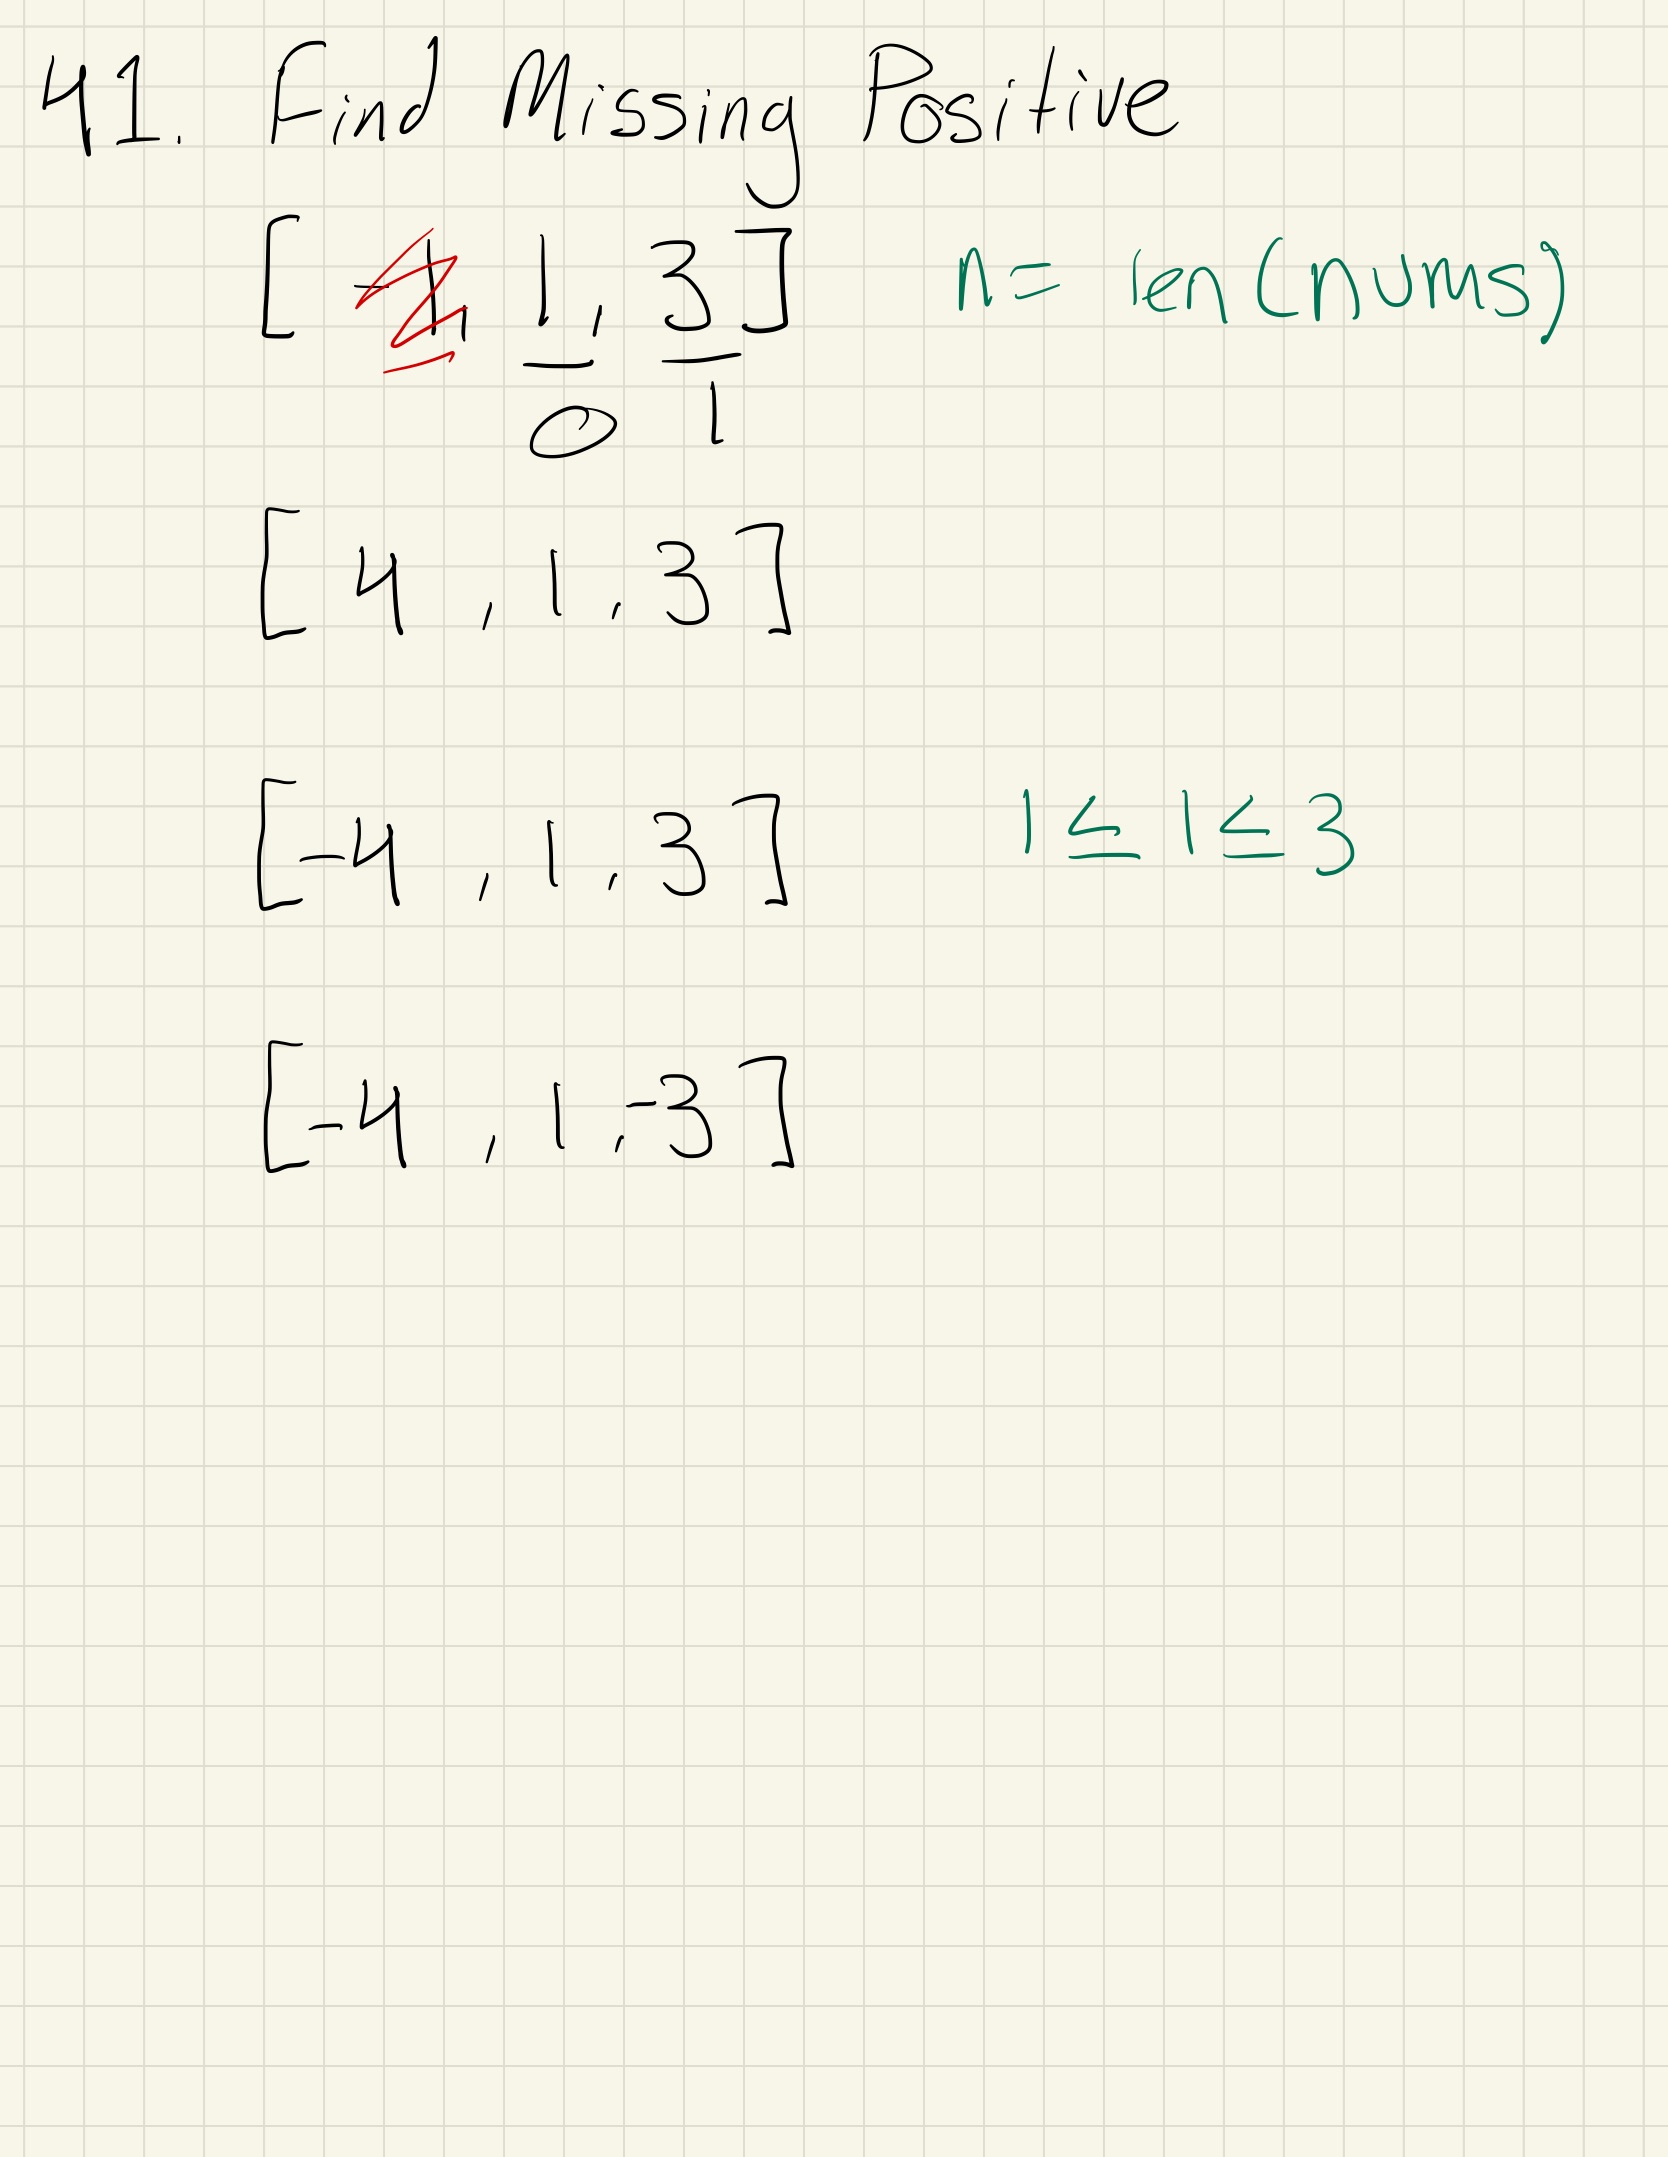 41. Find Missing Positive
[ -1, 1, 3] n = len(nums)
0 1
[ 4 , 1, 3]
[-4 , 1, 3] 1 ≤ 1 ≤ 3
[-4 , 1, -3]